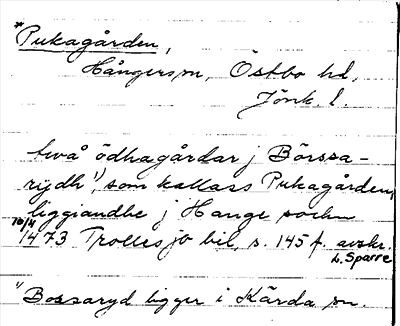 *Pukagården,
Hångers sn, Östbo hd,
Jönk. l.
två ödhagårdar j Börssa-
rijdh 1), som kallass Pukagården,
liggiandhe j Hange sochn
10/11 1473 Trollesjö bil, s. 145 f. avskr.
L. Sparre
1) Bossaryd ligger i Kärda sn.